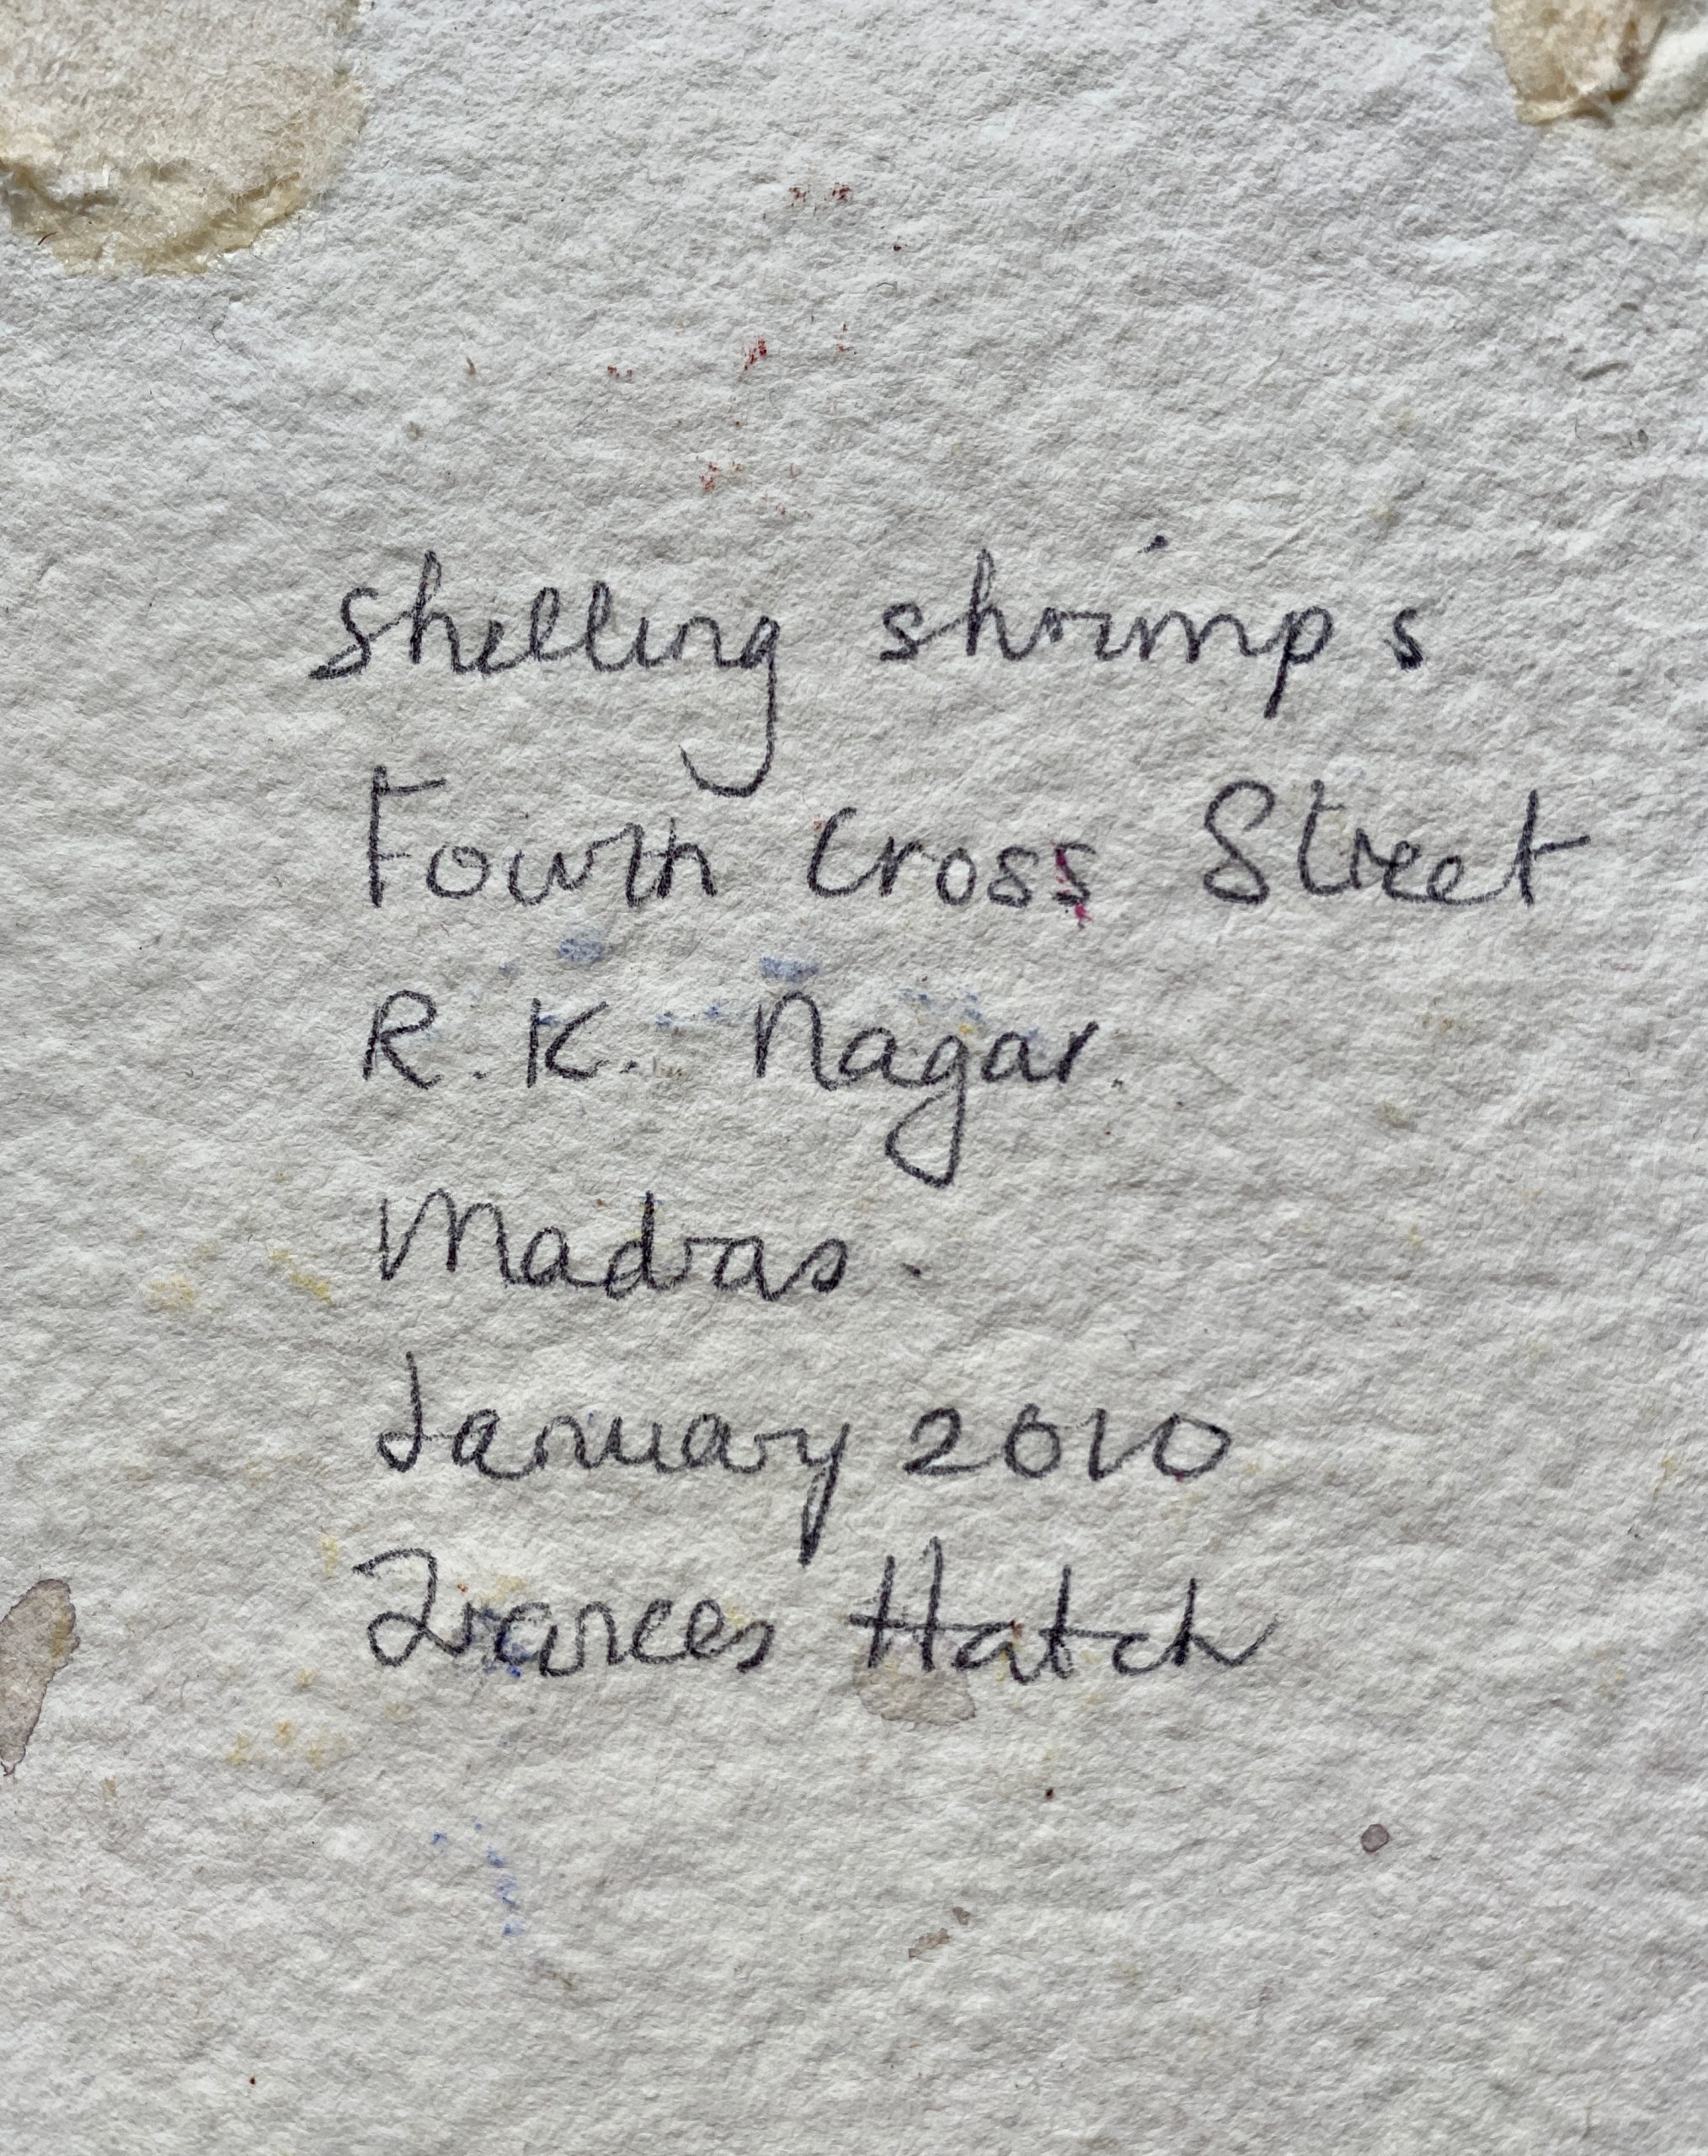 Shelling shrimps
Fourth Cross Street
R. K. Nagar.
Madras.
January 2010
Frances Hatch